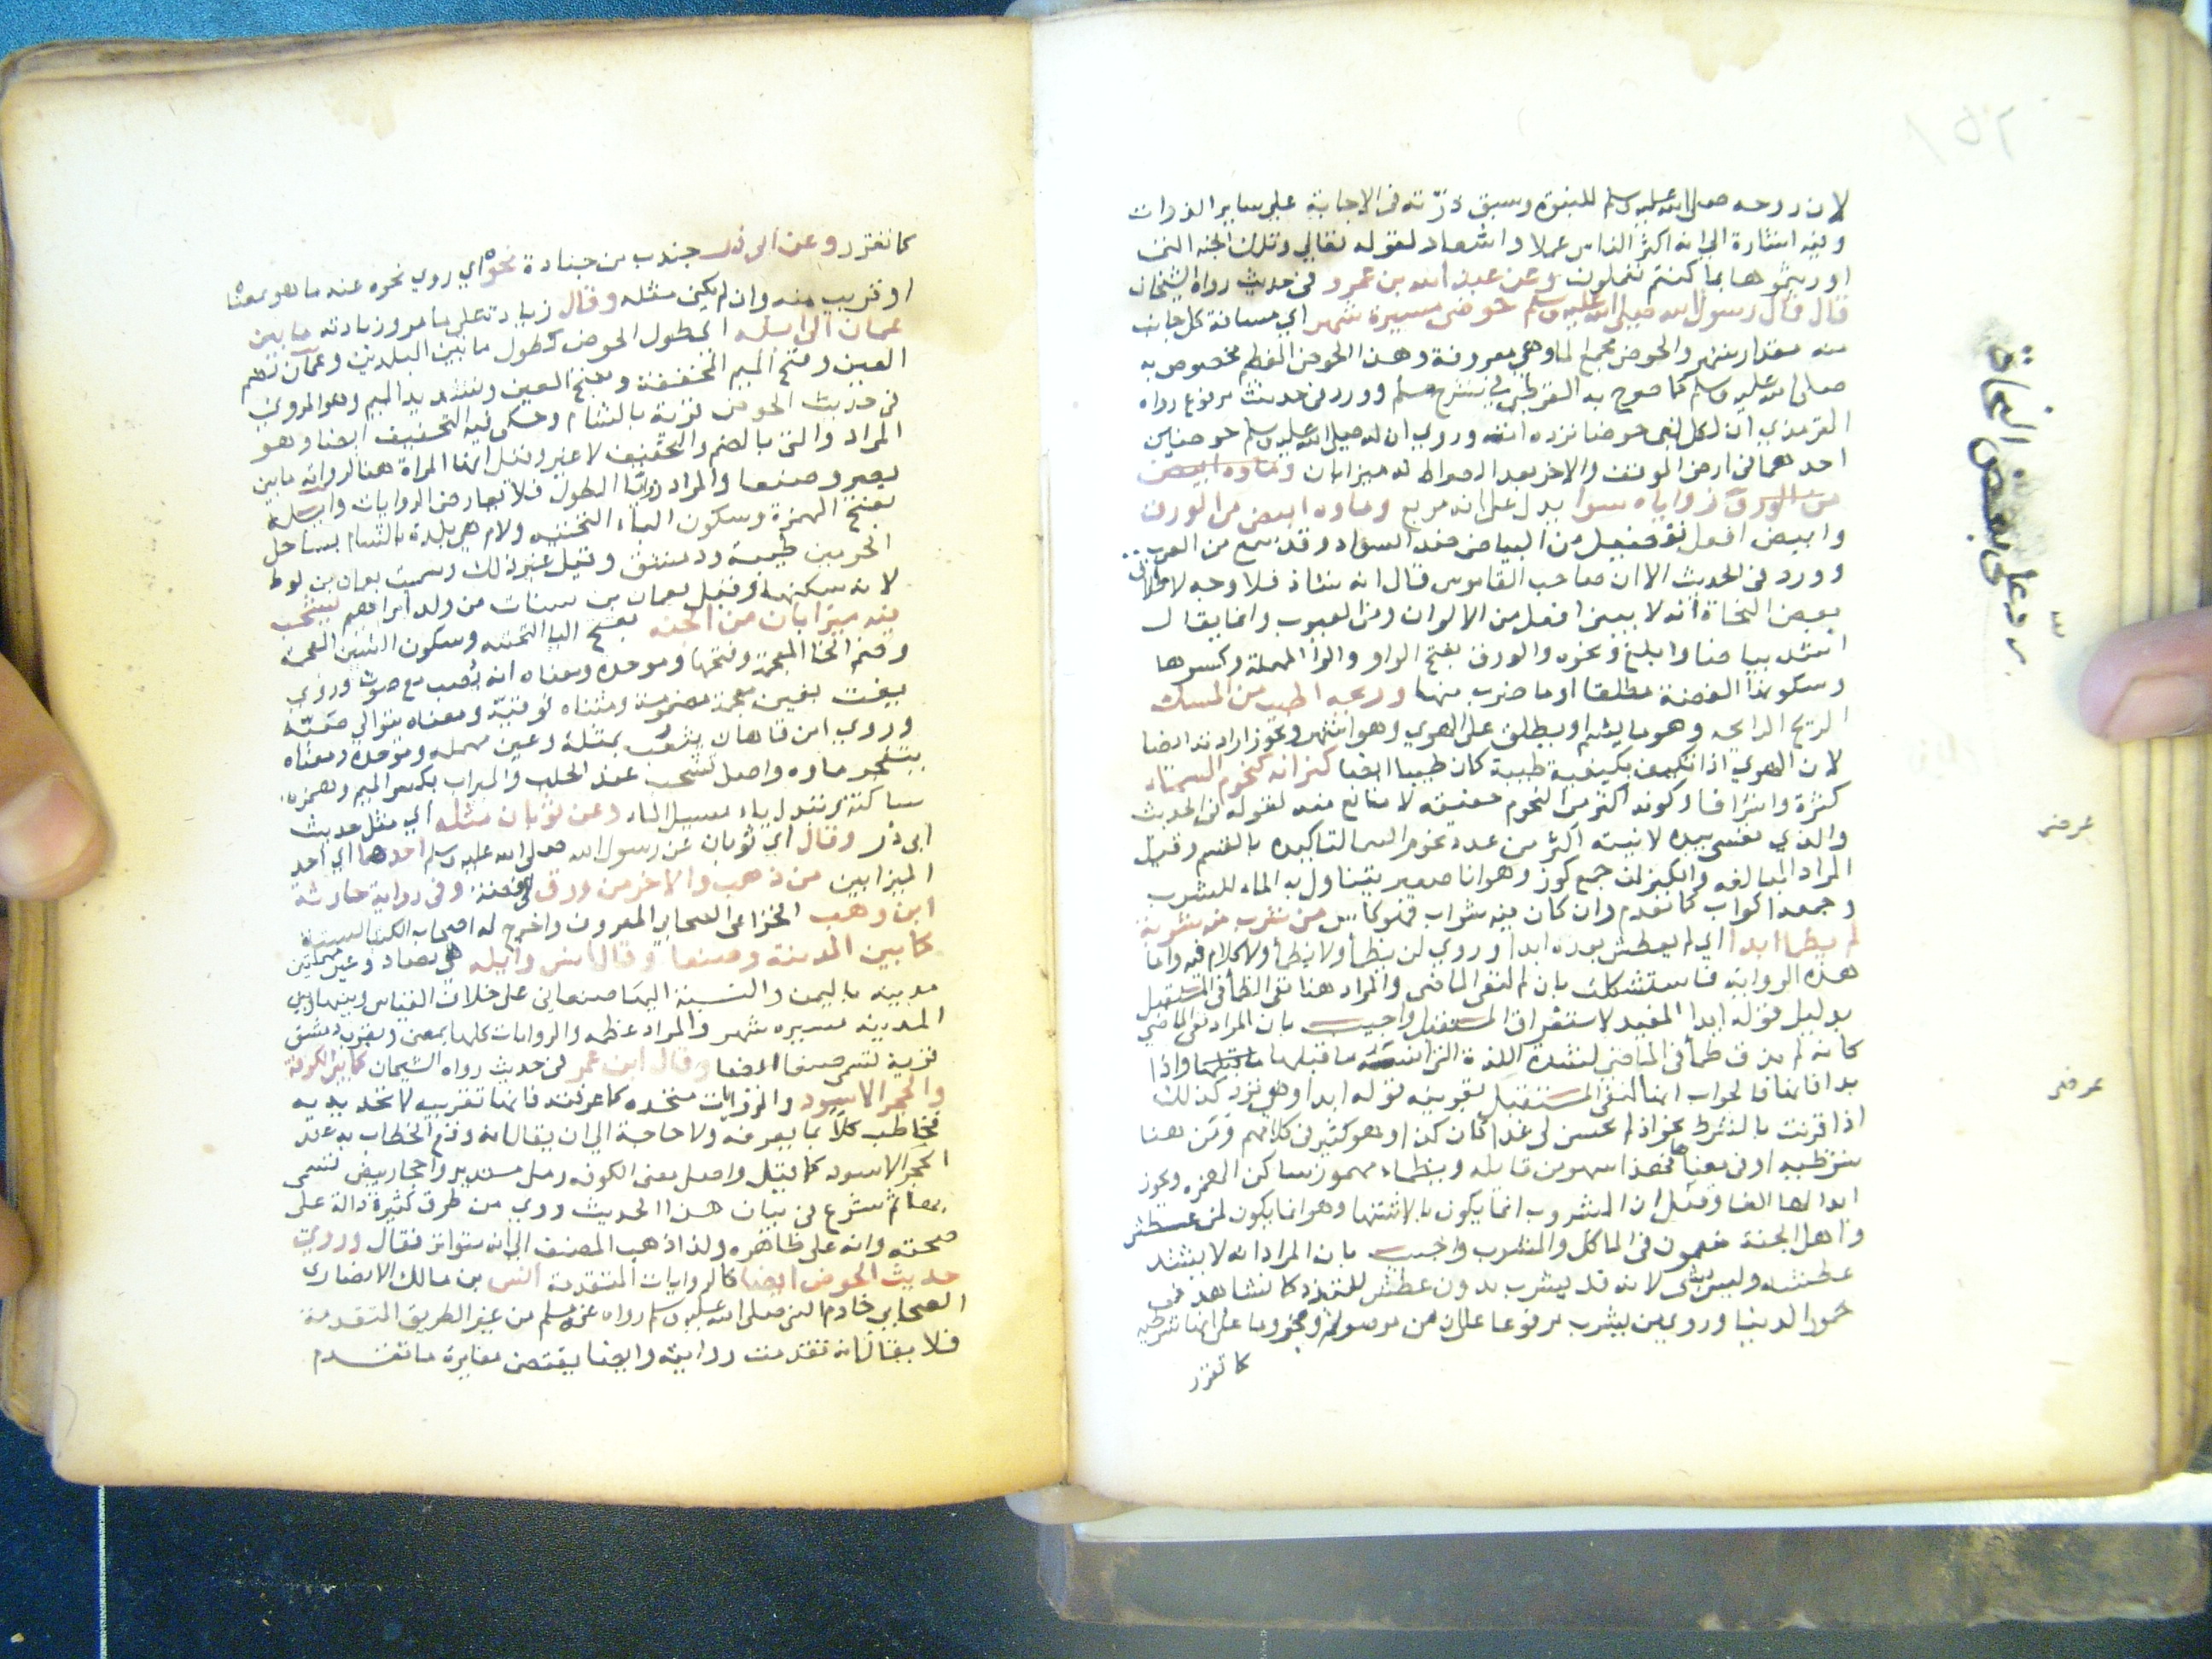 لان روحه صلى الله عليه وسلم للنبوة وسبق ذرته في الاجابة على ساير الذرات
وفيه اشارة الى انه اكثر الناس عملا واشعار لقوله تعالى وتلك الجنة التي
اورثتموها بما كنتم تعملون وعن عبد الله بن عمرو في حديث رواه الشيخان
قال قال رسول الله صلى الله عليه وسلم حوضي مسيرة شهر اي مسافة كل جانب
منه مقدار شهر والحوض مجمع الما وهي معروفة وهذا الحوض العظيم مخصوص به
صلى الله عليه وسلم كما صرح به القرطبي في شرح مسلم وورد في حديث مرفوع رواه
الترمذي ان لكل نبي حوضا ترده امته وروي ان له صلى الله عليه وسلم حوضين
احدهما في ارض الموقف والاخر بعد الصراط له ميزابان وماوه ابيض
من الورق زواياه سوا يدل على انه مربع وماوه ابيض من الورق
وابيض افعل تفضيل من البياض ضد السواد وقد سمع من العرب
وورد في الحديث الا ان صاحب القاموس قال انه شاذ فلا وجه
بعض النحاة انه لا يبنى افعل من الالوان ومن العيوب وانما يقال
اشد بياضا وابلغ ونحوه والورق بفتح الواو والرا المهملة وكسرها
وسكونها الفضة مطلقا او ما ضرب منها وريحه اطيب من المسك
الريح الرايحه وهو ما يشم او يطلق على الهوي وهو اشهر ويجوز ارادته ايضا
لان الهوي اذا تكيف بكيفية طيبة كان طيبا ايضا كيزانه كنجوم السماء
كثرة واشراقا وكونه اكثر من النجوم حقيقه لا مانع منه لقوله في الحديث
والذي نفسي بيده لانيته اكثر من عدد نجوم السما لتاكيده بالقسم وقيل
المراد المبالغه والكيزان جمع كوز وهو انا صغير يتناول به الماء للشرب
وجمعه اكواب كما تقدم وان كان فيه شراب فهو كاس من شرب منه شربة
لم يظما ابدا اي لم يعطش بعده ابدا وروي لن يظمأ ولا يظمأ ولا كلام فيه واما
هذه الرواية فاستشكلت بان لم لنفي الماضي والمراد هنا نفي الظمأ في المستقبل
بدليل قوله ابدا المفيد لاستغراق المستقبل واجيب بان المراد نفي الماضي
كانه لم يذق ظمأ في الماضي لشدة اللذة التي انسته ما قبلها واذا
بدا فانما فالجواب انها لنفي المستقبل بقرينه قوله ابدا وهي ترد كذلك
اذا قرنت بالشرط نحو اذ لم تحسن لي غدا كان كذا وهو كثير في كلامهم ومن هنا
شرطيه او في معناها فهذا سهو من قايله ويظما مهموز ساكن الهمزه ويجوز
ابدالها الفا وقيل ان المشروب انما يكون بالاشتها وهو انما يكون لمن عطش
واهل الجنة منعمون في الماكل والمشرب واجيب بان المراد انه لا يشتد
عطشه وليس بشي لانه قد يشرب بدون عطش للتلذذ كما نشاهد في
خمور الدنيا وروي من يشرب مرفوعا على ان من موصولة ومجزوما على انها شرطيه
كما تقرر
رد على بعض النحاة
عرض
عرض
كما تقرر وعن ابي ذر جندب بن جنادة نحوه اي روي نحوه عنه ما هو بمعناه
او قريب منه وان لم يكن مثله وقال زيادة على ما مر وزيادته ما بين
عمان الى ايله اي طول الحوض كطول ما بين البلدين وعمان بضم
العين وفتح الميم المخففة وبفتح العين وتشديد الميم وهو المروي
في حديث الحوض قرية بالشام وحكى فيه التخفيف ايضا وهو
المراد والتي بالضم والتخفيف لا غير وقيل انها المراة هنا لرواية ما بين
بصرى وصنعا والمراد بيان الطول فلا تعارض الروايات وايلة
بفتح الهمزة وسكون الياء التحتية ولام هي بلدة بالشام بساحل
البحر بين طيبة ودمشق وقيل غير ذلك وسميت بعمان بن لوط
لانه سكنها وقيل بعمان بن سنان من ولد ابراهيم يشخب
فيه ميزابان من الجنة بفتح اليا التحتيه وسكون الشين المعجمة
وضم الخا المعجمة وفتحها وموحدة ومعناه انه يصب مع صوت وروي
يغت بغين معجمة مضمومة ومثناه فوقية ومعناه يتوالى صبه
وروي ابن ماهان يثعب بمثلثة وعين مهمله وموحدة ومعناه
يتفجر ماوه واصل الشخب عند الحلب والميزاب بكسر الميم وهمزه
ساكنة وتبدل ياء مسيل الماء وعن ثوبان مثله اي مثل حديث
ابي ذر وقال اي ثوبان عن رسول الله صلى الله عليه وسلم احدهما اي احد
الميزابين من ذهب والاخر من ورق اي فضة وفي رواية حارثة
ابن وهب الخزاعي الصحابي المعروف واخرج له اصحاب الكتب الستة
كما بين المدينة وصنعا وقال انس وايله هي بصاد وعين مهملتين
مدينة باليمن والنسبة اليها صنعاني على خلاف القياس وبينها وبين
المدينة مسيرة شهر والمراد عظمه والروايات كلها بمعنى وبقرب دمشق
قرية تسمى صنعا ايضا وقال ابن عمر في حديث رواه الشيخان كما بين الكوفة
والحجر الاسود والروايات متحده كما عرفت فانها تقريبيه لا تحديديه
فخاطب كلا بما يعرفه ولا حاجة الى ان يقال انه وقع الخطاب به عند
الحجر الاسود كما قيل واصل معنى الكوفه رمل مستدير واحجار بيض تسمى
بها ثم شرع في بيان هذا الحديث روي من طرق كثيرة دالة على
صحته وانه على ظاهره ولذا ذهب المصنف الى انه متواتر فقال وروي
حديث الحوض ايضا كالروايات المتقدمة انس بن مالك الانصاري
الصحابي خادم النبي صلى الله عليه وسلم رواه عنه مسلم من غير الطريق المتقدمة
فلا يقال انه تقدمت روايته وايضا يقتضي مغايرة ما تقدم